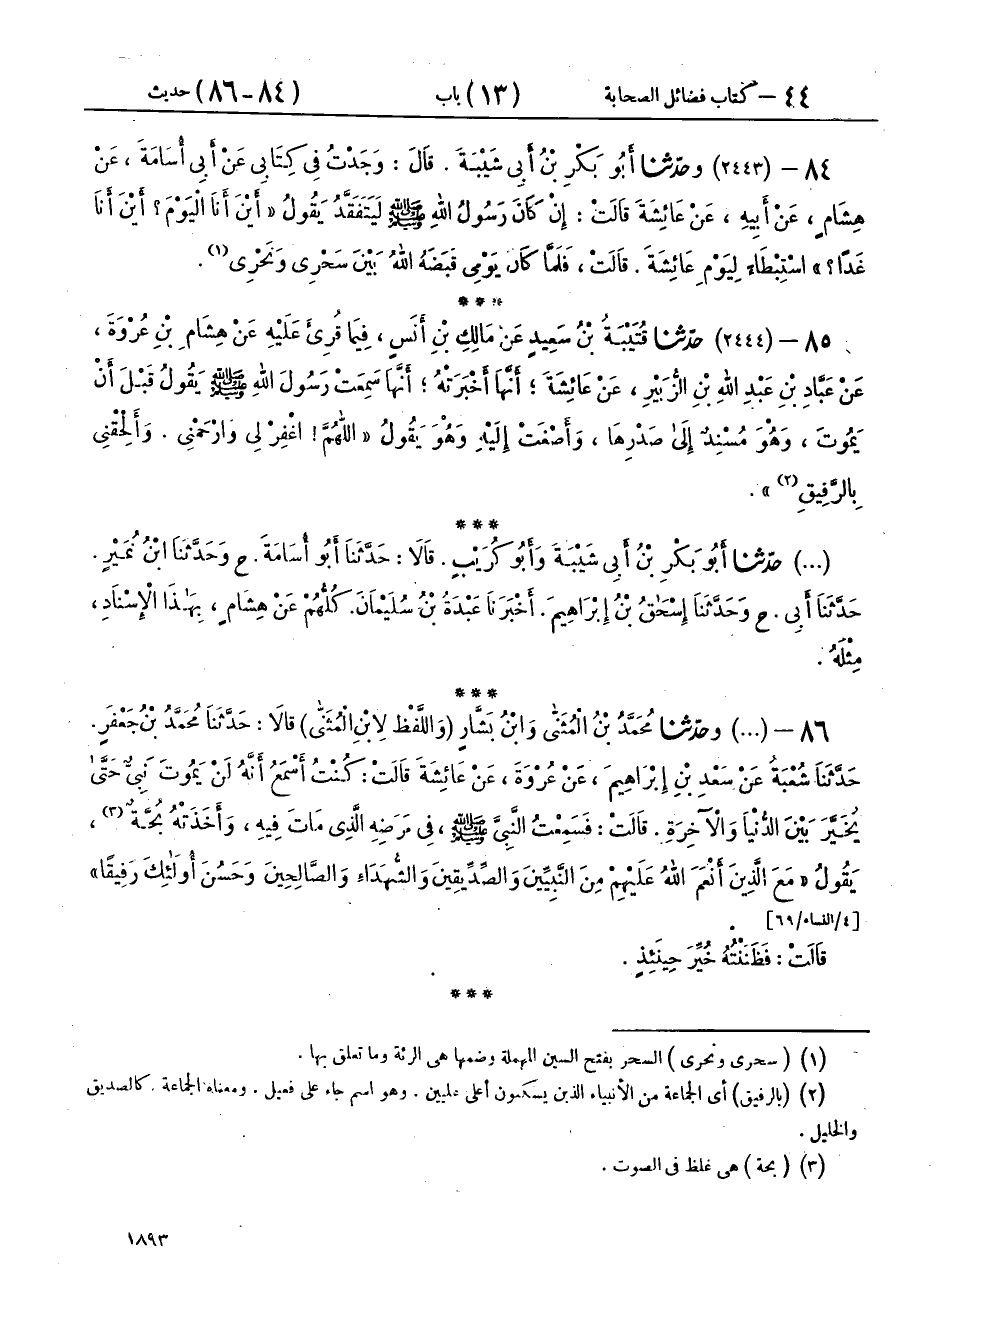 ٤٤ – كتاب فضائل الصحابة (١٣) باب (٨٤–٨٦) حديث
٨٤ – (٢٤٤٣) وحدّثنا أَبُو بَكْرِ بْنُ أَبِي شَيْبَةَ . قَالَ : وَجَدْتُ فِي كِتَابِي عَنْ أَبِي أُسَامَةَ ، عَنْ
هِشَامٍ ، عَنْ أَبِيهِ ، عَنْ عَائِشَةَ قَالَتْ : إِنْ كَانَ رَسُولُ اللهِ ﷺ لَيَتَفَقَّدُ يَقُولُ « أَيْنَ أَنَا الْيَوْمَ ؟ أَيْنَ أَنَا
غَدًا ؟ » اسْتِبْطَاءً لِيَوْمِ عَائِشَةَ . قَالَتْ ، فَلَمَّا كَانَ يَوْمِي قَبَضَهُ اللهُ بَيْنَ سَحْرِى وَنَحْرِى (١) .
***
٨٥ – (٢٤٤٤) حدّثنا قُتَيْبَةُ بْنُ سَعِيدٍ عَنْ مَالِكِ بْنِ أَنَسٍ ، فِيمَا قُرِئَ عَلَيْهِ عَنْ هِشَامِ بْنِ عُرْوَةَ ،
عَنْ عَبَّادِ بْنِ عَبْدِ اللهِ بْنِ الزُّبَيْرِ ، عَنْ عَائِشَةَ ؛ أَنَّهَا أَخْبَرَتْهُ ؛ أَنَّهَا سَمِعَتْ رَسُولَ اللهِ ﷺ يَقُولُ قَبْلَ أَنْ
يَمُوتَ ، وَهُوَ مُسْنِدٌ إِلَىٰ صَدْرِهَا ، وَأَصْغَتْ إِلَيْهِ وَهُوَ يَقُولُ « اللَّهُمَّ ! اغْفِرْ لِي وَارْحَمْنِي . وَأَلْحِقْنِي
بِالرَّفِيقِ (٢) » .
***
(...) حدّثنا أَبُو بَكْرِ بْنُ أَبِي شَيْبَةَ وَأَبُو كُرَيْبٍ . قَالَا : حَدَّثَنَا أَبُو أُسَامَةَ . ح وَحَدَّثَنَا ابْنُ نُمَيْرٍ .
حَدَّثَنَا أَبِي . ح وَحَدَّثَنَا إِسْحَٰقُ بْنُ إِبْرَاهِيمَ . أَخْبَرَنَا عَبْدَةُ بْنُ سُلَيْمَانَ. كُلُّهُمْ عَنْ هِشَامٍ ، بِهَٰذَا الْإِسْنَادِ ،
مِثْلَهُ .
***
٨٦ – (...) وحدّثنا مُحَمَّدُ بْنُ الْمُثَنَّىٰ وَابْنُ بَشَّارٍ (وَاللَّفْظُ لِابْنِ الْمُثَنَّىٰ) قَالَا : حَدَّثَنَا مُحَمَّدُ بْنُ جَعْفَرٍ .
حَدَّثَنَا شُعْبَةُ عَنْ سَعْدِ بْنِ إِبْرَاهِيمَ ، عَنْ عُرْوَةَ ، عَنْ عَائِشَةَ قَالَتْ : كُنْتُ أَسْمَعُ أَنَّهُ لَنْ يَمُوتَ نَبِيٌّ حَتَّىٰ
يُخَيَّرَ بَيْنَ الدُّنْيَا وَالْآخِرَةِ . قَالَتْ : فَسَمِعْتُ النَّبِيَّ ﷺ ، فِي مَرَضِهِ الَّذِي مَاتَ فِيهِ ، وَأَخَذَتْهُ بُحَّةٌ (٣) ،
يَقُولُ « مَعَ الَّذِينَ أَنْعَمَ اللهُ عَلَيْهِمْ مِنَ النَّبِيِّينَ وَالصِّدِّيقِينَ وَالشُّهَدَاءِ وَالصَّالِحِينَ وَحَسُنَ أُولَٰئِكَ رَفِيقًا »
[٤/النساء/٦٩]
قَالَتْ : فَظَنَنْتُهُ خُيِّرَ حِينَئِذٍ .
***
(١) (سحرى ونحرى) السحر بفتح السين المهملة وضمها هى الرئة وما تعلق بها .
(٢) (بالرفيق) أى الجماعة من الأنبياء الذين يسكنون أعلى عليين . وهو اسم جاء على فعيل . ومعناه الجماعة . كالصديق
والخليل .
(٣) (بحة) هى غلظ فى الصوت .
١٨٩٣